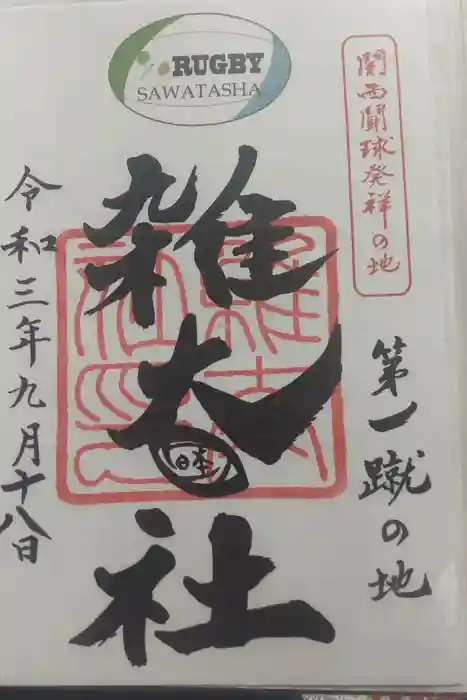 RUGBY
SAWATASHA
関西闘球発祥の地
第一蹴の地
雑太社
日本
雑太社印
令和三年九月十八日